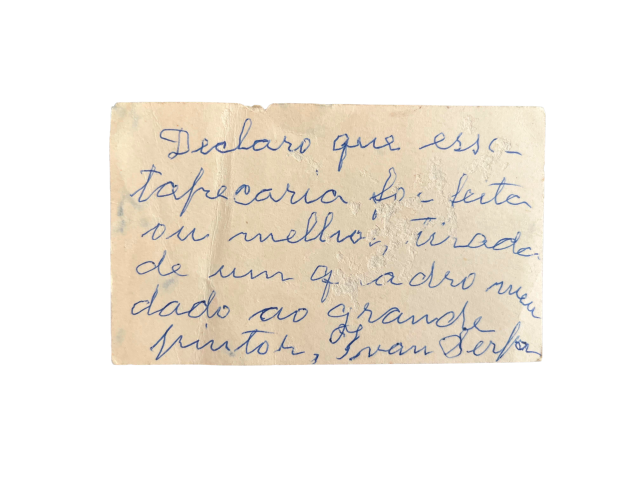 Declaro que essa
tapeçaria foi feita
ou melhor, tirada
de um quadro meu
dado ao grande
pintor, Ivan Serpa